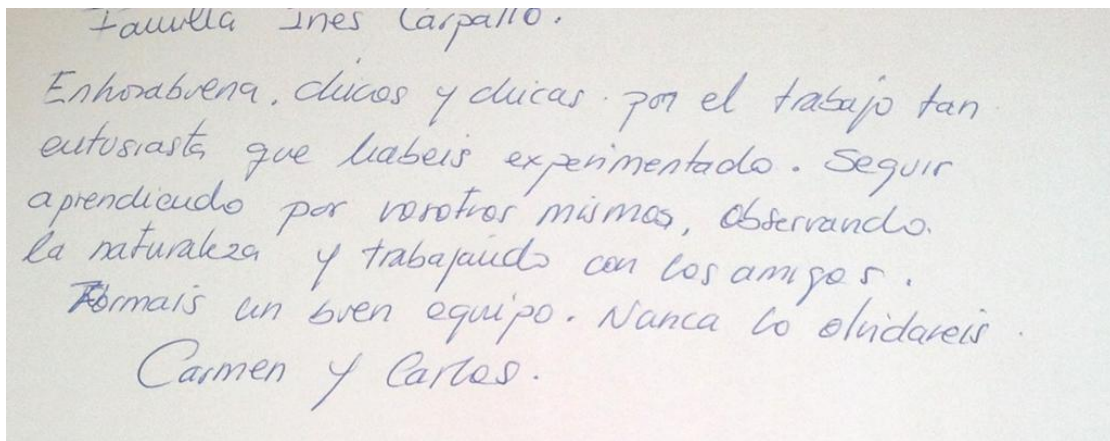 Familia Ines Carpallo.
Enhorabuena, chicos y chicas por el trabajo tan
entusiasta que habeis experimentado. Seguir
aprendiendo por vosotros mismos, observando
la naturaleza y trabajando con los amigos.
Formais un buen equipo. Nunca lo olvidareis.
Carmen y Carlos.